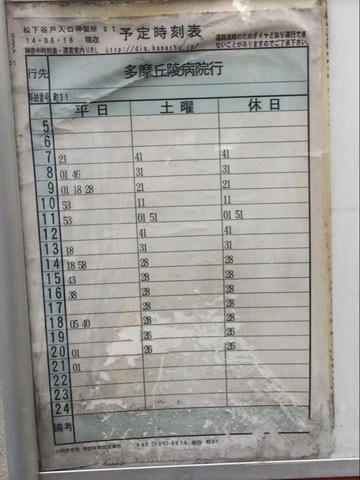 松下谷戸入口停留所 01
予定時刻表
14-06-16 現在
神奈中時刻表・運賃案内URL http://dia.kanachu.jp/
道路混雑のためダイヤどおり運行でき
ないことがありますのでご了承下さい
行先 多摩丘陵病院行
系統番号 町31
平日 土曜 休日
5
6
7 21 41 41
8 01 46 31 31
9 01 18 28 21 21
10 53 11 11
11 53 01 51 01 51
12 41 41
13 18 31 31
14 18 58 28 28
15 43 28 28
16 38 28 28
17 28 28
18 05 40 28 28
19 26 26
20 01 26 26
21 01
22
23
24
備考
町31